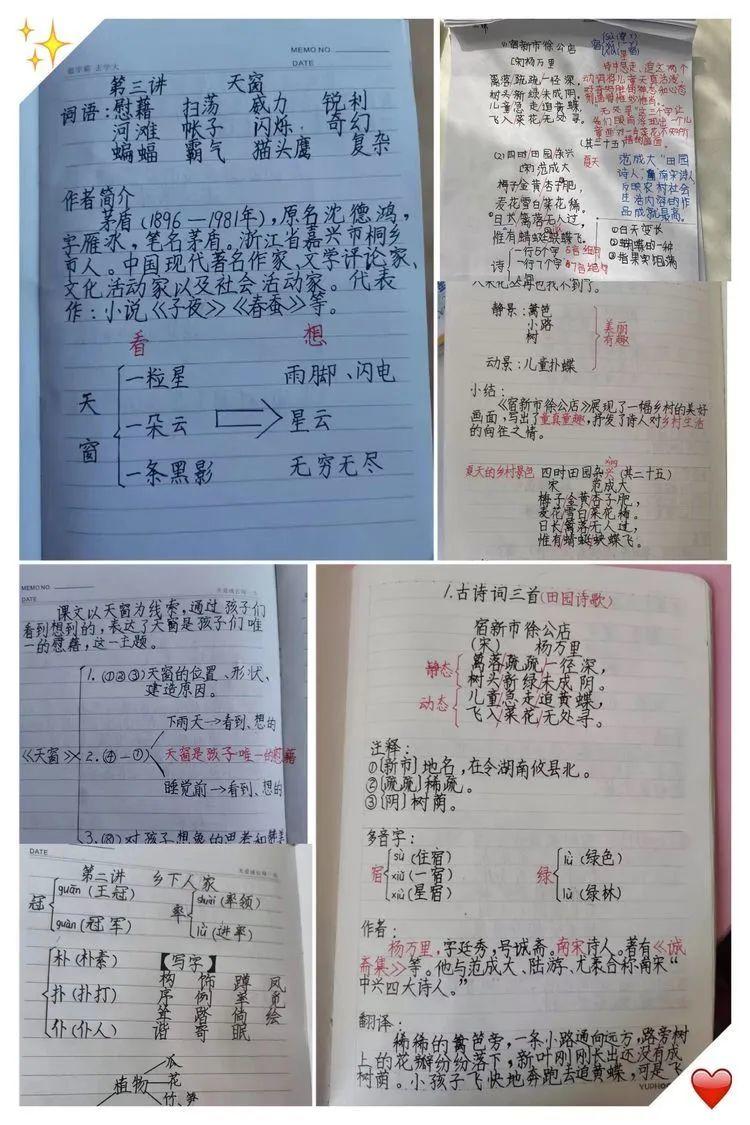 MEMO NO
DATE
第三讲 天窗
词语：慰藉 扫荡 威力 锐利
河滩 帐子 闪烁 奇幻
蝙蝠 霸气 猫头鹰 复杂
作者简介
茅盾(1896—1981年)，原名沈德鸿，
字雁冰，笔名茅盾。浙江省嘉兴市桐乡
市人。中国现代著名作家、文学评论家、
文化活动家以及社会活动家。代表
作：小说《子夜》《春蚕》等。
看 想
天窗
一粒星 雨脚、闪电
一朵云 星云
一条黑影 无穷无尽
(1)宿新市徐公店
(宋)杨万里
篱落疏疏一径深，
树头新绿未成阴。
儿童急走追黄蝶，
飞入菜花无处寻。
(其二十五)
(2)四时田园杂兴
(宋)范成大
梅子金黄杏子肥，
麦花雪白菜花稀。
日长篱落无人过，
惟有蜻蜓蛱蝶飞。
夏天
范成大"田园
诗人，南宋诗人
反映农村社会
生活内容的作
品成就最高。
诗
一行5个字 5言绝句
一行7个字 7言绝句
①白天变长
②蝴蝶的一种
③指果实饱满
静景：篱笆
小路
树
美丽
有趣
动景：儿童扑蝶
小结：
《宿新市徐公店》展现了一幅乡村的美好
画面，写出了童真童趣，抒发了诗人对乡村生活
的向往之情。
xìng
夏天的乡村景色 四时田园杂兴(其二十五)
宋 范成大
梅子金黄杏子肥，
麦花雪白菜花稀。
日长篱落无人过，
惟有蜻蜓蛱蝶飞。
MEMO NO.
DATE
课文以天窗为线索，通过孩子们
看到想到的，表达了天窗是孩子们唯
一的慰藉，这一主题。
《天窗》
1.(①②③)天窗的位置、形状、
建造原因。
下雨天→看到、想的
2.(④-⑦) 天窗是孩子唯一的慰藉
睡觉前→看到、想的
3.(⑧)对孩子想象的思考和赞美
DATE
第二讲 乡下人家
冠 guān(王冠)
guàn(冠军)
率 shuài(率领)
lǜ(进率)
朴(朴素)
扑(扑打)
仆(仆人)
【写字】
构 饰 蹲 凤
序 例 率 觅
耸 踏 倘 绘
谐 寄 眠
植物
瓜
花
竹、笋
1.古诗词三首(田园诗歌)
宿新市徐公店
(宋) 杨万里
静态 篱落疏疏一径深，
树头新绿未成阴。
动态 儿童急走追黄蝶，
飞入菜花无处寻。
注释：
①[新市]地名，在今湖南攸县北。
②[疏疏]稀疏。
③[阴]树荫。
多音字：
宿 sù(住宿)
xiǔ(一宿)
xiù(星宿)
绿 lǜ(绿色)
lù(绿林)
作者：
杨万里，字廷秀，号诚斋。南宋诗人。著有《诚
斋集》等。他与范成大、陆游、尤袤合称南宋"
中兴四大诗人。"
翻译：
稀稀的篱笆旁，一条小路通向远方，路旁树
上的花瓣纷纷落下，新叶刚刚长出还没有成
树荫。小孩子飞快地奔跑去追黄蝶，可是飞